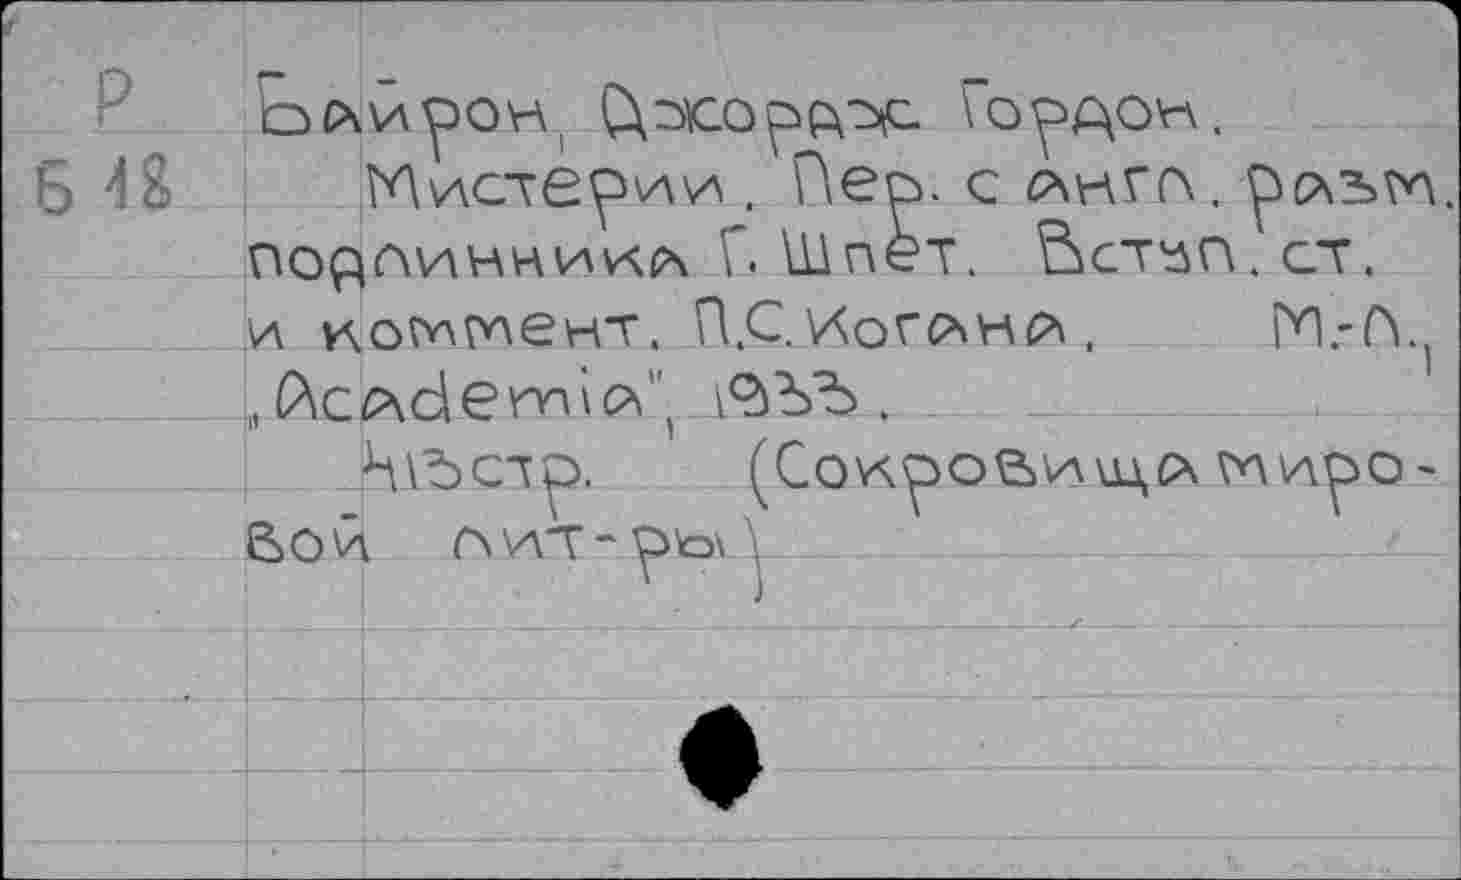 Р Байрон, Джордж Гордон.
Б 18 Мистерии. Пер. с англ. разм.
подлинника Г. Шпет. Вступ. ст.
и коммент. П.С. Когана. М.-Л.,
„Academia", 1933.
стр. (Сокровища миро-
вой лит-ры)